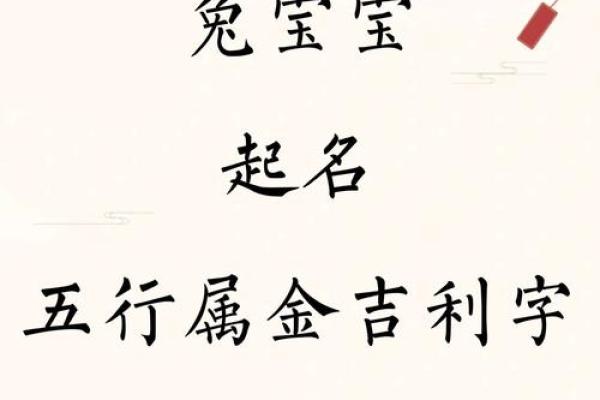 兔宝宝
起名
五行属金吉利字